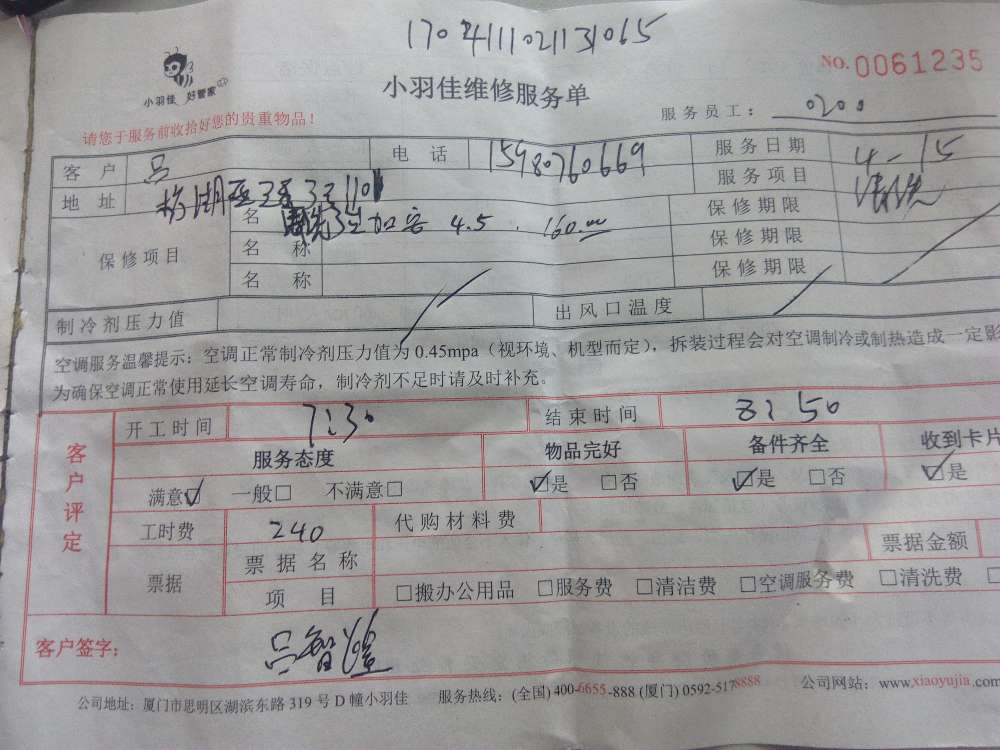 170411102113​1065
NO.0061235
小羽佳 好管家
小羽佳维修服务单
服务员工: 0200
请您于服务前收拾好您的贵重物品!
客户 吕 电话 15980760669 服务日期 4-15
地址 3 1101 服务项目 清洗
保修项目 名 加客 4.5 160.00 保修期限
名称 保修期限
名称 保修期限
制冷剂压力值 出风口温度
空调服务温馨提示:空调正常制冷剂压力值为0.45mpa(视环境、机型而定),拆装过程会对空调制冷或制热造成一定影
为确保空调正常使用延长空调寿命,制冷剂不足时请及时补充。
客户评定
开工时间 7:30 结束时间 8:50
服务态度 物品完好 备件齐全 收到卡片
满意☑ 一般□ 不满意□ ☑是 □否 ☑是 □否 ☑是
工时费 240 代购材料费
票据 票据名称 票据金额
项目 □搬办公用品 □服务费 □清洁费 □空调服务费 □清洗费 □
客户签字: 吕智
公司地址:厦门市思明区湖滨东路319号D幢小羽佳 服务热线:(全国)400-6655-888 (厦门)0592-5178888 公司网站:www.xiaoyujia.com